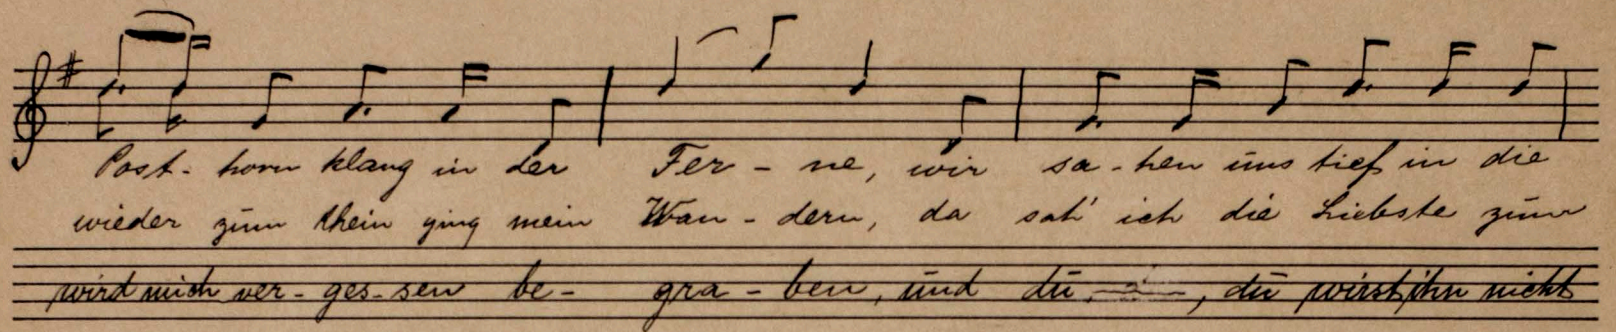 Post- horn klang in der Fer - ne, wir sa - hen uns tief in die
wieder zum Rhein ging mein Wan - dern, da sah' ich die Liebste zum
wird mich ver- ges- sen be- gra - ben, und du, , du wirst ihn nicht